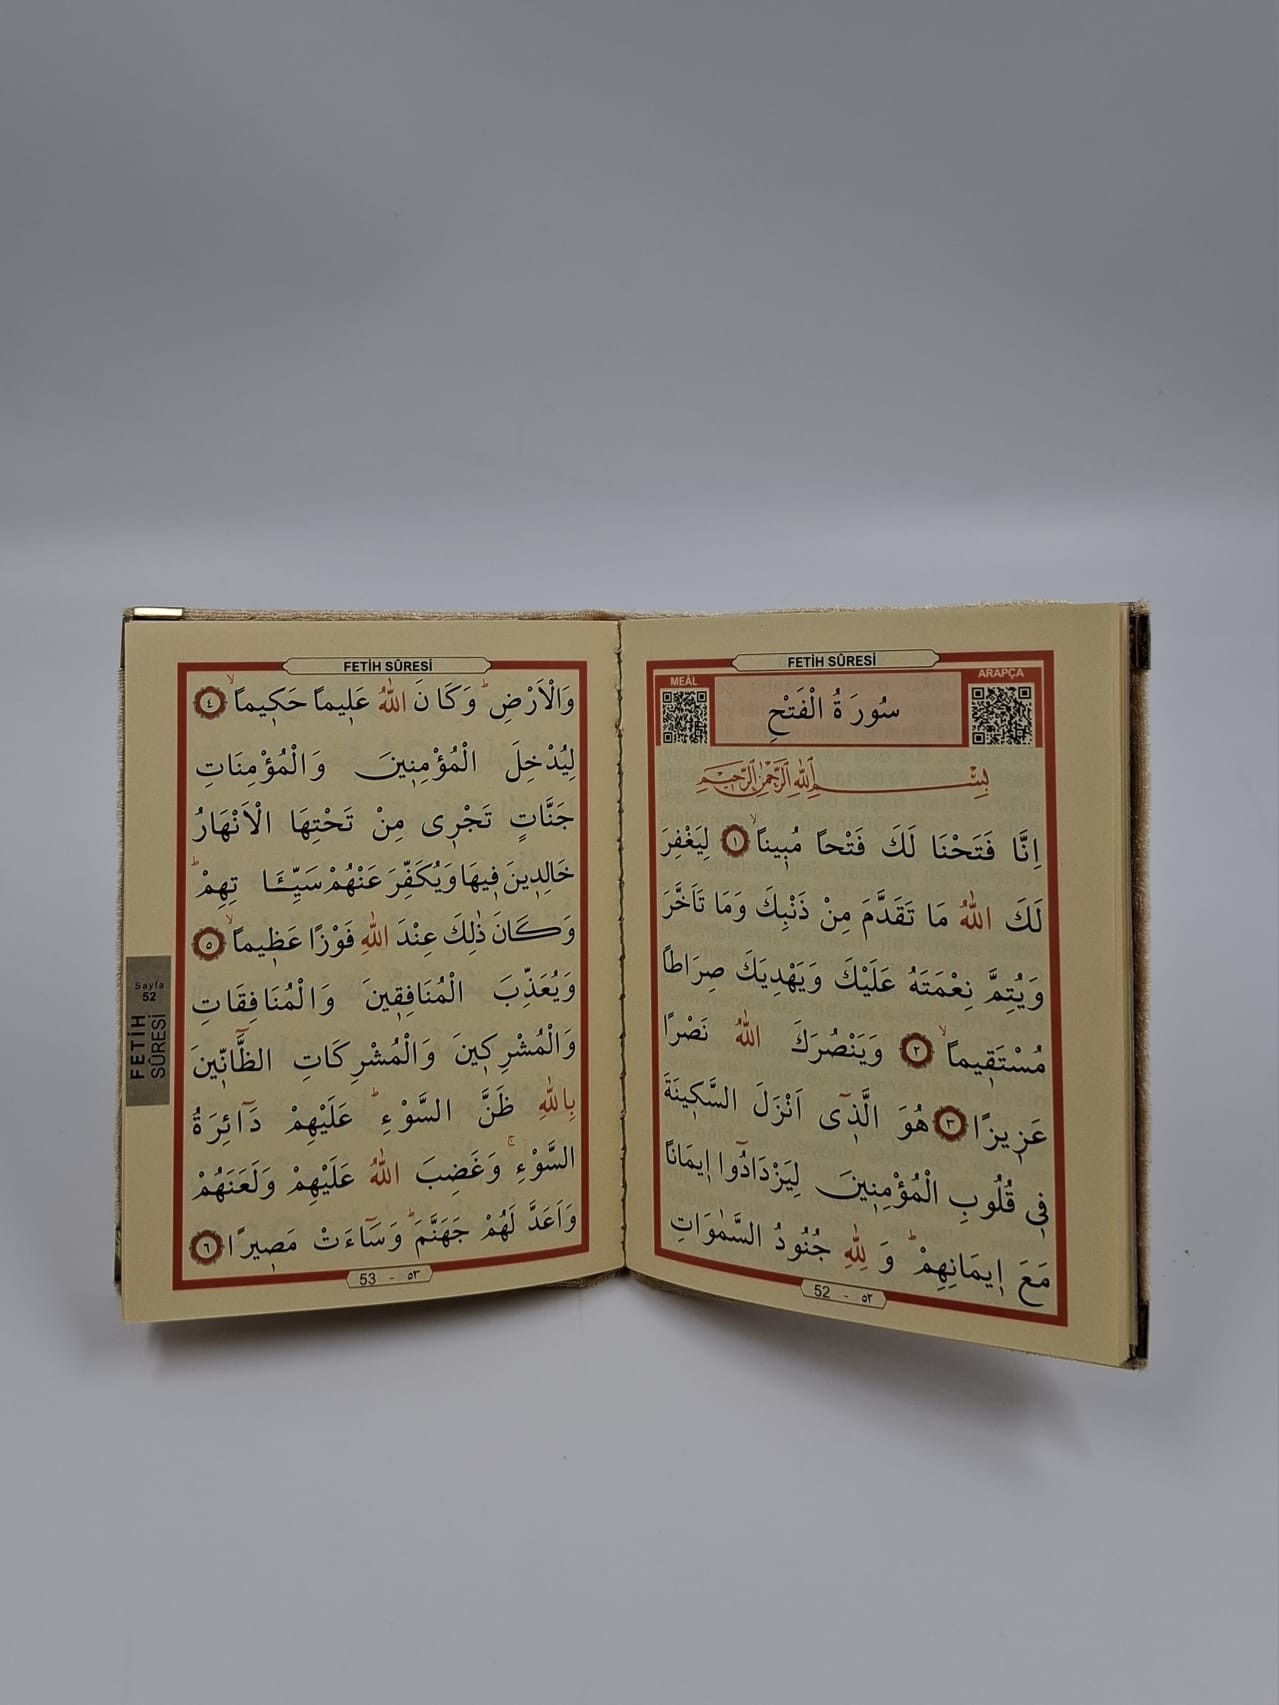 FETİH SÛRESİ
MEÂL
ARAPÇA
سُورَةُ الْفَتْحِ
بِسْمِ اللّٰهِ الرَّحْمٰنِ الرَّحِيمِ
اِنَّا فَتَحْنَا لَكَ فَتْحاً مُبٖيناًۙ ﴿١﴾ لِيَغْفِرَ
لَكَ اللّٰهُ مَا تَقَدَّمَ مِنْ ذَنْبِكَ وَمَا تَاَخَّرَ
وَيُتِمَّ نِعْمَتَهُ عَلَيْكَ وَيَهْدِيَكَ صِرَاطاً
مُسْتَقٖيماًۙ ﴿٢﴾ وَيَنْصُرَكَ اللّٰهُ نَصْرًا
عَزٖيزًا ﴿٣﴾ هُوَ الَّذٖٓى اَنْزَلَ السَّكٖينَةَ
فٖى قُلُوبِ الْمُؤْمِنٖينَ لِيَزْدَادُٓوا اٖيمَاناً
مَعَ اٖيمَانِهِمْؕ وَ لِلّٰهِ جُنُودُ السَّمٰوَاتِ
52 - ٥٢
FETİH SÛRESİ
وَالْاَرْضِؕ وَكَانَ اللّٰهُ عَلٖيماً حَكٖيماًۙ ﴿٤﴾
لِيُدْخِلَ الْمُؤْمِنٖينَ وَالْمُؤْمِنَاتِ
جَنَّاتٍ تَجْرٖى مِنْ تَحْتِهَا الْاَنْهَارُ
خَالِدٖينَ فٖيهَا وَيُكَفِّرَ عَنْهُمْ سَيِّـَٔاتِهِمْؕ
وَكَانَ ذٰلِكَ عِنْدَ اللّٰهِ فَوْزًا عَظٖيماًۙ ﴿٥﴾
وَيُعَذِّبَ الْمُنَافِقٖينَ وَالْمُنَافِقَاتِ
وَالْمُشْرِكٖينَ وَالْمُشْرِكَاتِ الظَّٓانّٖينَ
بِاللّٰهِ ظَنَّ السَّوْءِؕ عَلَيْهِمْ دَٓائِرَةُ
السَّوْءِۚ وَغَضِبَ اللّٰهُ عَلَيْهِمْ وَلَعَنَهُمْ
وَاَعَدَّ لَهُمْ جَهَنَّمَؕ وَسَٓاءَتْ مَصٖيرًا ﴿٦﴾
53 - ٥٣
Sayfa
52
FETİH
SÛRESİ